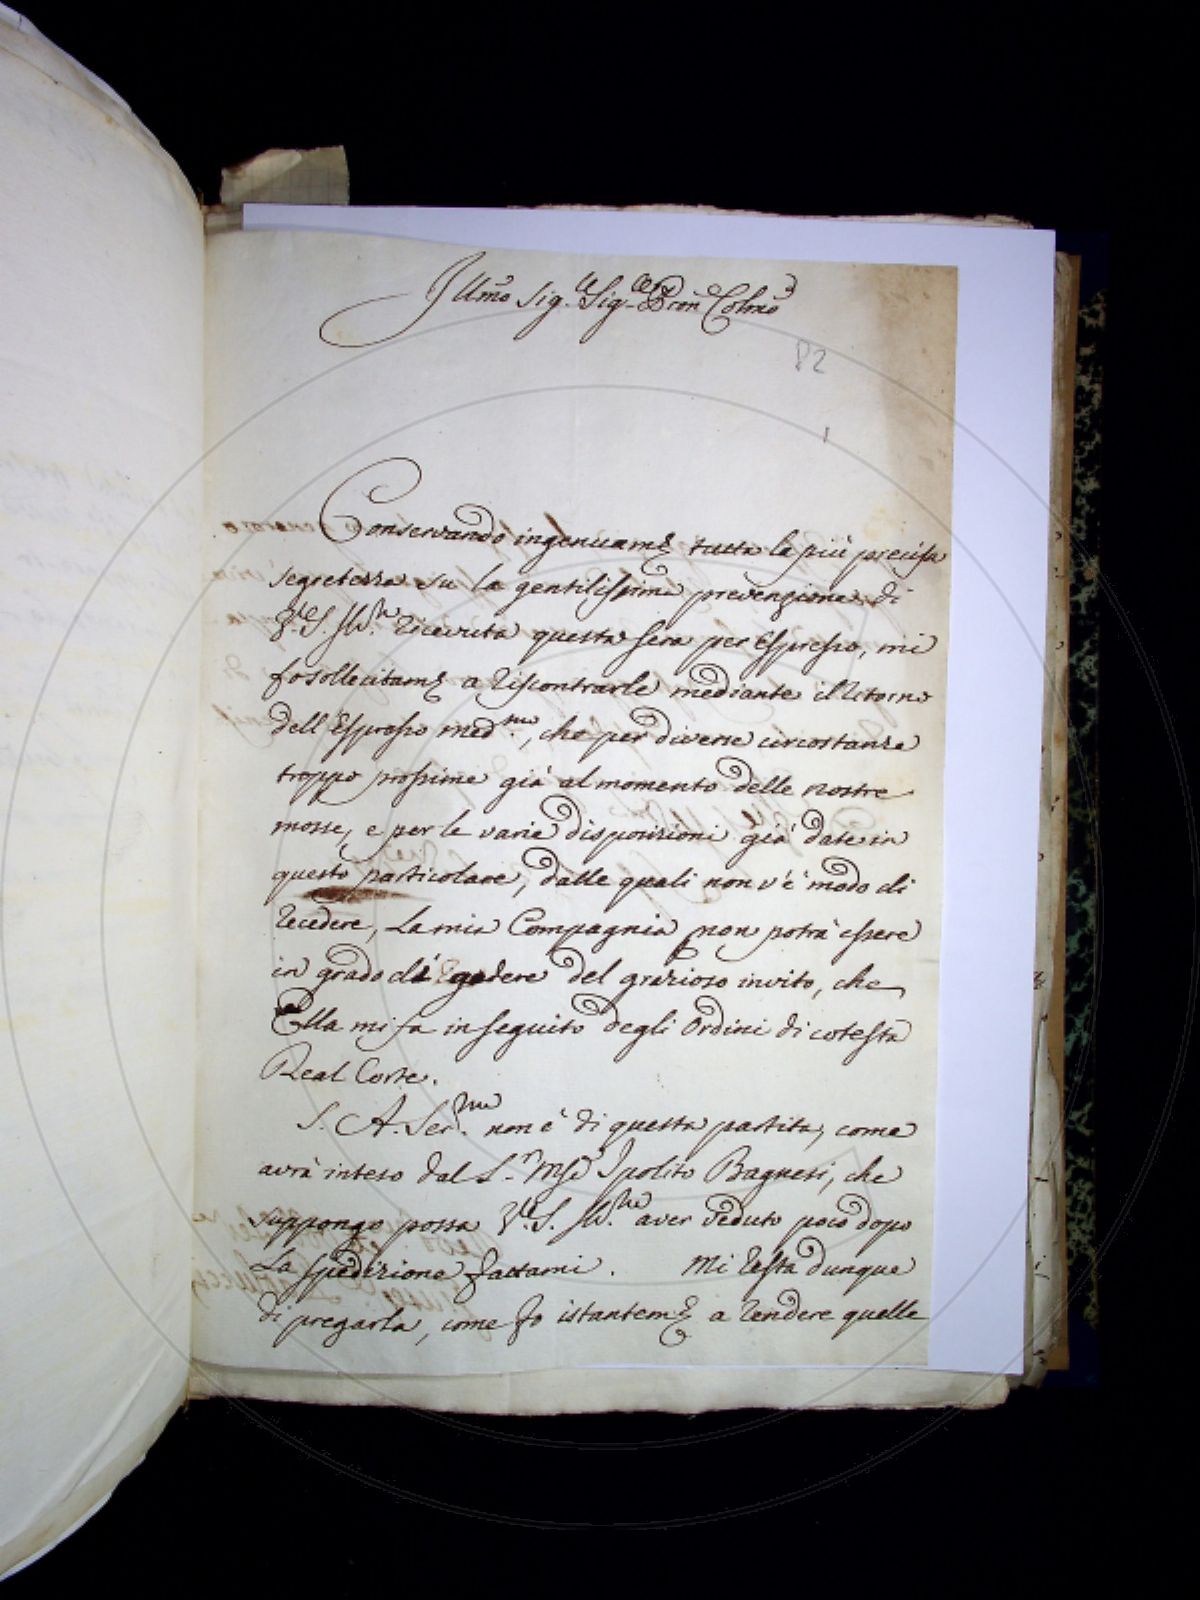 Illmo Sig.re Sig.re Pron Colmo
82
1
Conservando ingenuam.e tutta la più precisa
segretezza su la gentilissima prevenzione di
V.S. Ill.ma ricevuta questa sera per Espresso, mi
fo sollecitam.e a riscontrarle mediante il ritorno
dell'Espresso med.mo, che per diverse circostanze
troppo prossime già al momento delle nostre
mosse, e per le varie disposizioni già date in
questo particolare, dalle quali non v'è modo di
recedere, La mia Compagnia non potrà essere
in grado di godere del grazioso invito, che
Ella mi fa in seguito degli Ordini di cotesta
Real Corte.
S. A. Ser.ma non è di questa partita, come
avrà inteso dal S.r Mse Ipolito Bagnesi, che
suppongo possa V.S. Ill.ma aver veduto poco dopo
La spedizione fattami. Mi resta dunque
di pregarla, come fo istantem.e a rendere quelle